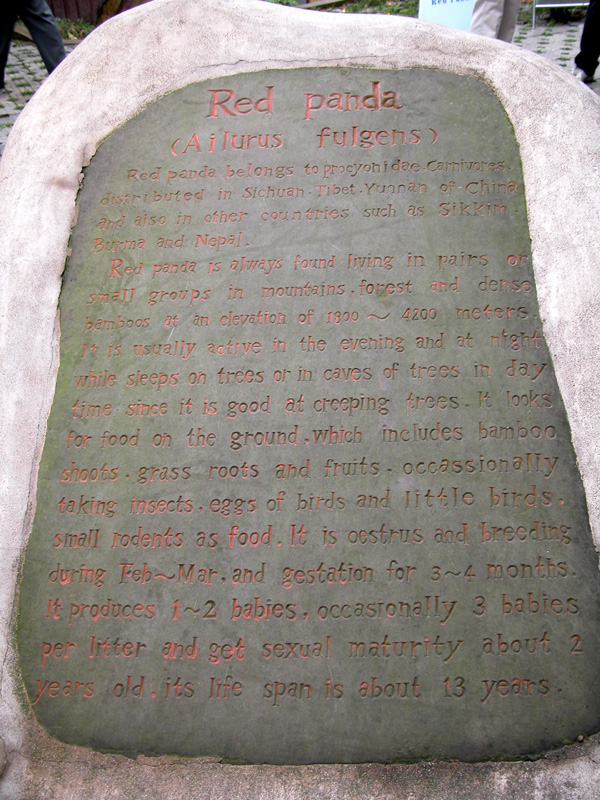 Red panda
(Ailurus fulgens)
Red panda belongs to procyonidae. Carnivores.
distributed in Sichuan. Tibet. Yunnan of China
and also in other countries such as Sikkim.
Burma and Nepal.
Red panda is always found living in pairs or
small groups in mountains. forest and dense
bamboos at an elevation of 1800 ~ 4200 meters.
It is usually active in the evening and at night
while sleeps on trees or in caves of trees in day
time since it is good at creeping trees. It looks
for food on the ground. which includes bamboo
shoots. grass roots and fruits. occassionally
taking insects. eggs of birds and little birds.
small rodents as food. It is oestrus and breeding
during Feb~Mar. and gestation for 3~4 months.
It produces 1~2 babies. occasionally 3 babies
per litter and get sexual maturity about 2
years old. its life span is about 13 years.